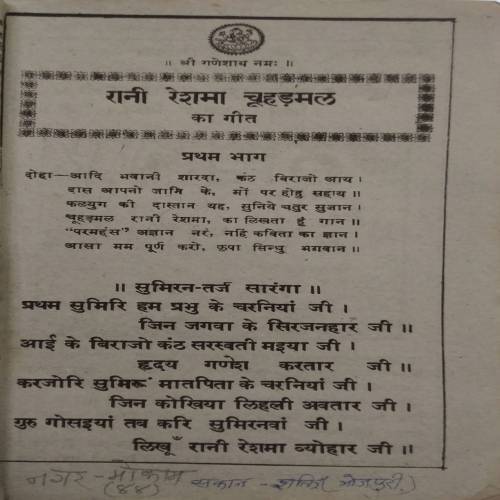 ॥ श्री गणेशाय नमः ॥
रानी रेशमा चूहड़मल
का गीत
प्रथम भाग
दोहा—आदि भवानी शारदा, कंठ बिराजो आय ।
दास आपनो जानि के, मों पर होहु सहाय ॥
कलयुग की दास्तान यह, सुनिये चतुर सुजान ।
चूहड़मल रानी रेशमा, का लिखता हूं गान ॥
"परमहंस" अज्ञान नर, नहिं कविता का ज्ञान ।
आसा मम पूर्ण करो, कृपा सिन्धु भगवान ॥
॥ सुमिरन-तर्ज सारंगा ॥
प्रथम सुमिरि हम प्रभु के चरनियां जी ।
जिन जगवा के सिरजनहार जी ॥
आई के बिराजो कंठ सरस्वती मइया जी ।
हृदय गणेश करतार जी ॥
करजोरि सुमिरूं मातपिता के चरनियां जी ।
जिन कोखिया लिहली अवतार जी ॥
गुरु गोसइयां तब करि सुमिरनवां जी ।
लिखूँ रानी रेशमा व्योहार जी ॥
नगर-मोकामा
(४४) (भोजपुरी)